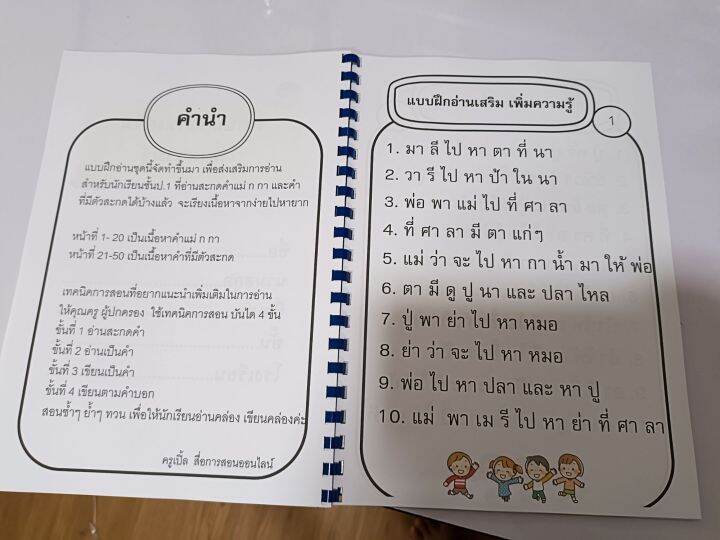 คำนำ
แบบฝึกอ่านชุดนี้จัดทำขึ้นมา เพื่อส่งเสริมการอ่าน
สำหรับนักเรียนชั้นป.1 ที่อ่านสะกดคำแม่ ก กา และคำ
ที่มีตัวสะกดได้บ้างแล้ว จะเรียงเนื้อหาจากง่ายไปหายาก
หน้าที่ 1- 20 เป็นเนื้อหาคำแม่ ก กา
หน้าที่ 21-50 เป็นเนื้อหาคำที่มีตัวสะกด
เทคนิคการสอนที่อยากแนะนำเพิ่มเติมในการอ่าน
ให้คุณครู ผู้ปกครอง ใช้เทคนิคการสอน บันได 4 ขั้น
ขั้นที่ 1 อ่านสะกดคำ
ขั้นที่ 2 อ่านเป็นคำ
ขั้นที่ 3 เขียนเป็นคำ
ขั้นที่ 4 เขียนตามคำบอก
สอนซ้ำๆ ย้ำๆ ทวน เพื่อให้นักเรียนอ่านคล่อง เขียนคล่องค่ะ
ครูเปิ้ล สื่อการสอนออนไลน์
แบบฝึกอ่านเสริม เพิ่มความรู้
1
1. มา ลี ไป หา ตา ที่ นา
2. วา รี ไป หา ป้า ใน นา
3. พ่อ พา แม่ ไป ที่ ศา ลา
4. ที่ ศา ลา มี ตา แก่ๆ
5. แม่ ว่า จะ ไป หา กา น้ำ มา ให้ พ่อ
6. ตา มี ดู ปู นา และ ปลา ไหล
7. ปู่ พา ย่า ไป หา หมอ
8. ย่า ว่า จะ ไป หา หมอ
9. พ่อ ไป หา ปลา และ หา ปู
10. แม่ พา เม รี ไป หา ย่า ที่ ศา ลา